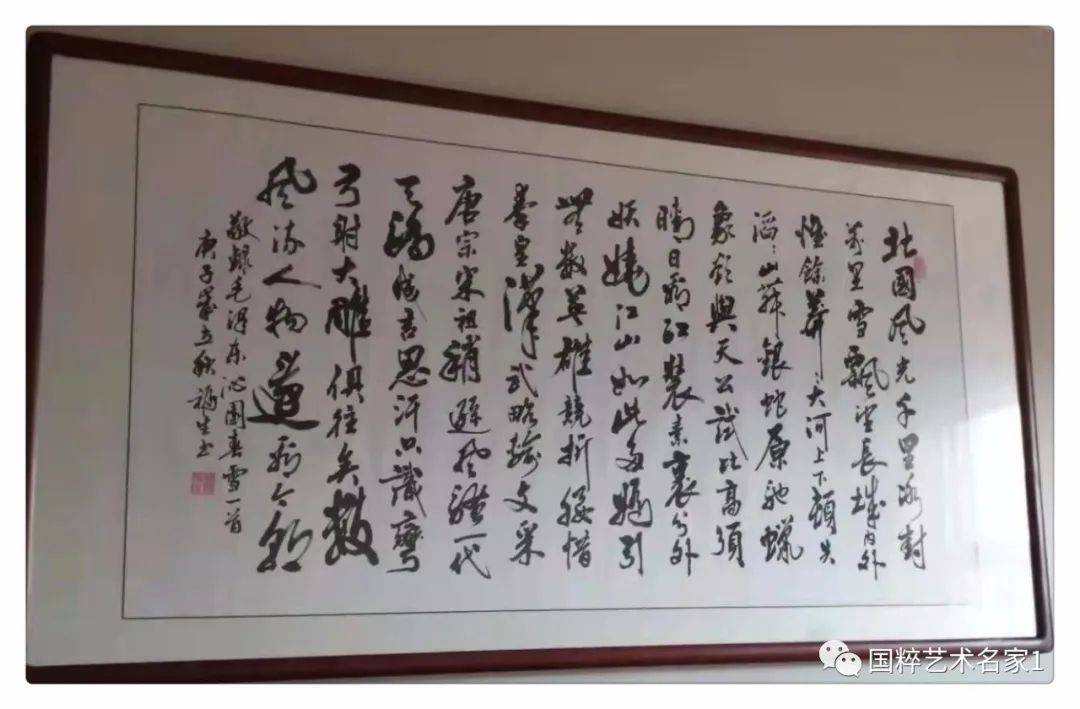 北國風光千里冰封
萬里雪飄望長城內外
惟餘莽〻大河上下頓失
滔〻山舞銀蛇原馳蠟
象欲與天公試比高須
晴日看紅裝素裹分外
妖嬈江山如此多嬌引
無數英雄競折腰惜
秦皇漢武略輸文采
唐宗宋祖稍遜風騷一代
天驕成吉思汗只識彎
弓射大雕俱往矣數
風流人物還看今朝
敬錄毛澤东沁園春雪一首
庚子歲立秋福生书
国粹艺术名家1